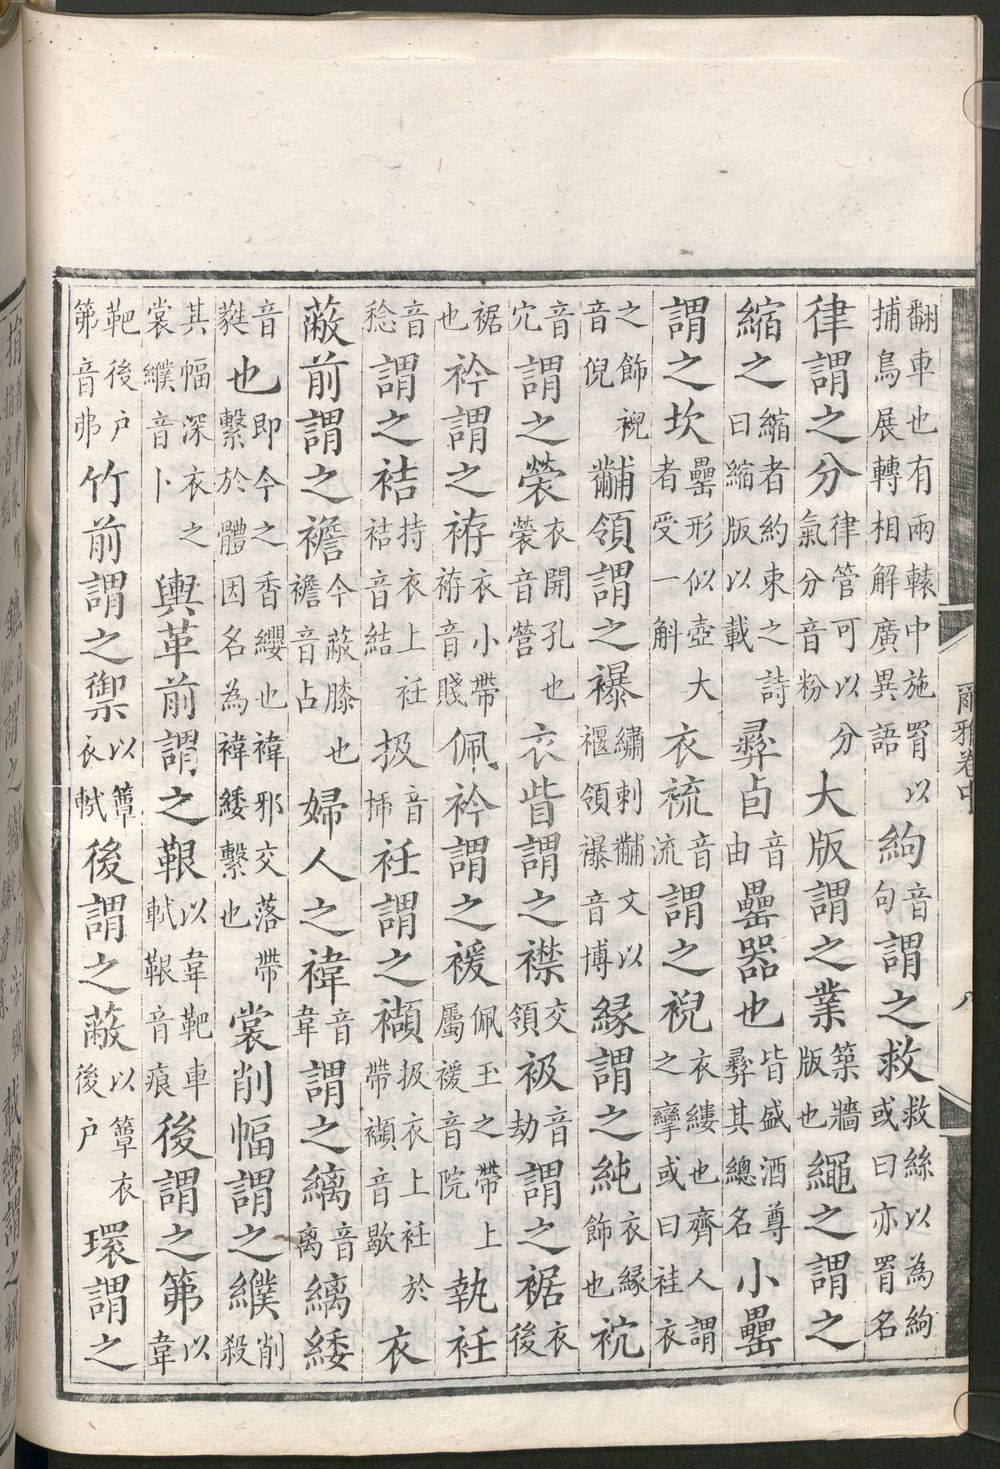 翻車也有兩轅中施罥以捕鳥展轉相解廣異語絇音句謂之救救絲以為絇或曰亦罥名
律謂之分律管可以分氣分音粉大版謂之業築牆版也繩之謂之
縮之縮者約束之詩曰縮版以載彝卣音由罍器也皆盛酒尊彝其總名小罍
謂之坎罍形似壺大者受一斛衣裗音流謂之䘽衣縷也齊人謂之攣或曰袿衣
之飾䘽音倪黼領謂之襮繡刺黼文以褗領襮音博緣謂之純衣緣飾也袕
音穴謂之褮衣開孔也褮音營衣眥謂之襟交領衱音劫謂之裾衣後
裾也衿謂之袸衣小帶袸音賤佩衿謂之褑佩玉之帶上屬褑音院執衽
音稔謂之袺持衣上衽袺音結扱音插衽謂之襭扱衣上衽於帶襭音歇衣
蔽前謂之襜今蔽膝也襜音占婦人之褘音韋謂之縭音離縭緌
音蕤也即今之香纓也褘邪交落帶繫於體因名為褘緌繫也裳削幅謂之纀削殺
其幅深衣之裳纀音卜輿革前謂之鞎以韋靶車軾鞎音痕後謂之第以韋
靶後户第音弗竹前謂之禦以簟衣軾後謂之蔽以簟衣後户環謂之
爾雅卷中
八